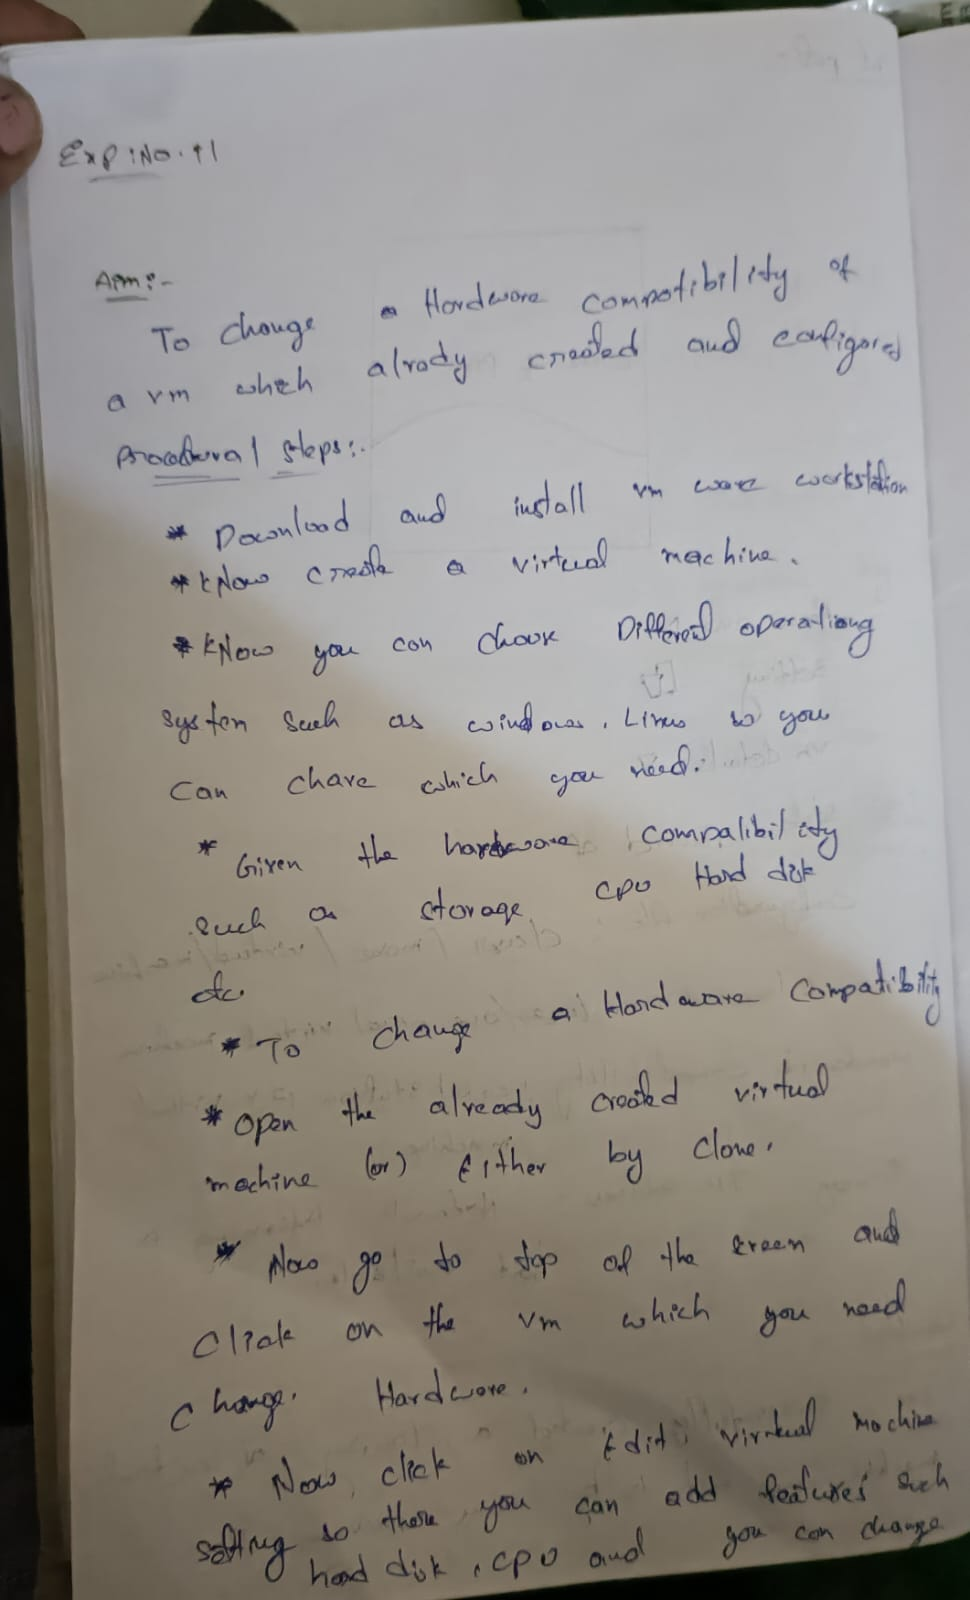 Exp:No.11
Aim:-
To change a Hardware compatibility of
a vm which alrady created and configored
Procedural steps:-
* Download and install vm ware workstation
* kNow create a virtual machine.
* kNow you can choose Different operationg
system such as windows, Linux so you
can chare which you need.
* Given the hardware compatibility
such as storage, CPU Hard disk
etc
* To change a Hardware Compatibility
* Open the already created virtual
machine (or) Either by clone.
* Now go to top of the kreen and
Click on the vm which you need
change. Hardware.
* Now, click on Edit virtual machine
setting so there you can add features such
hard disk, CPU and you can change